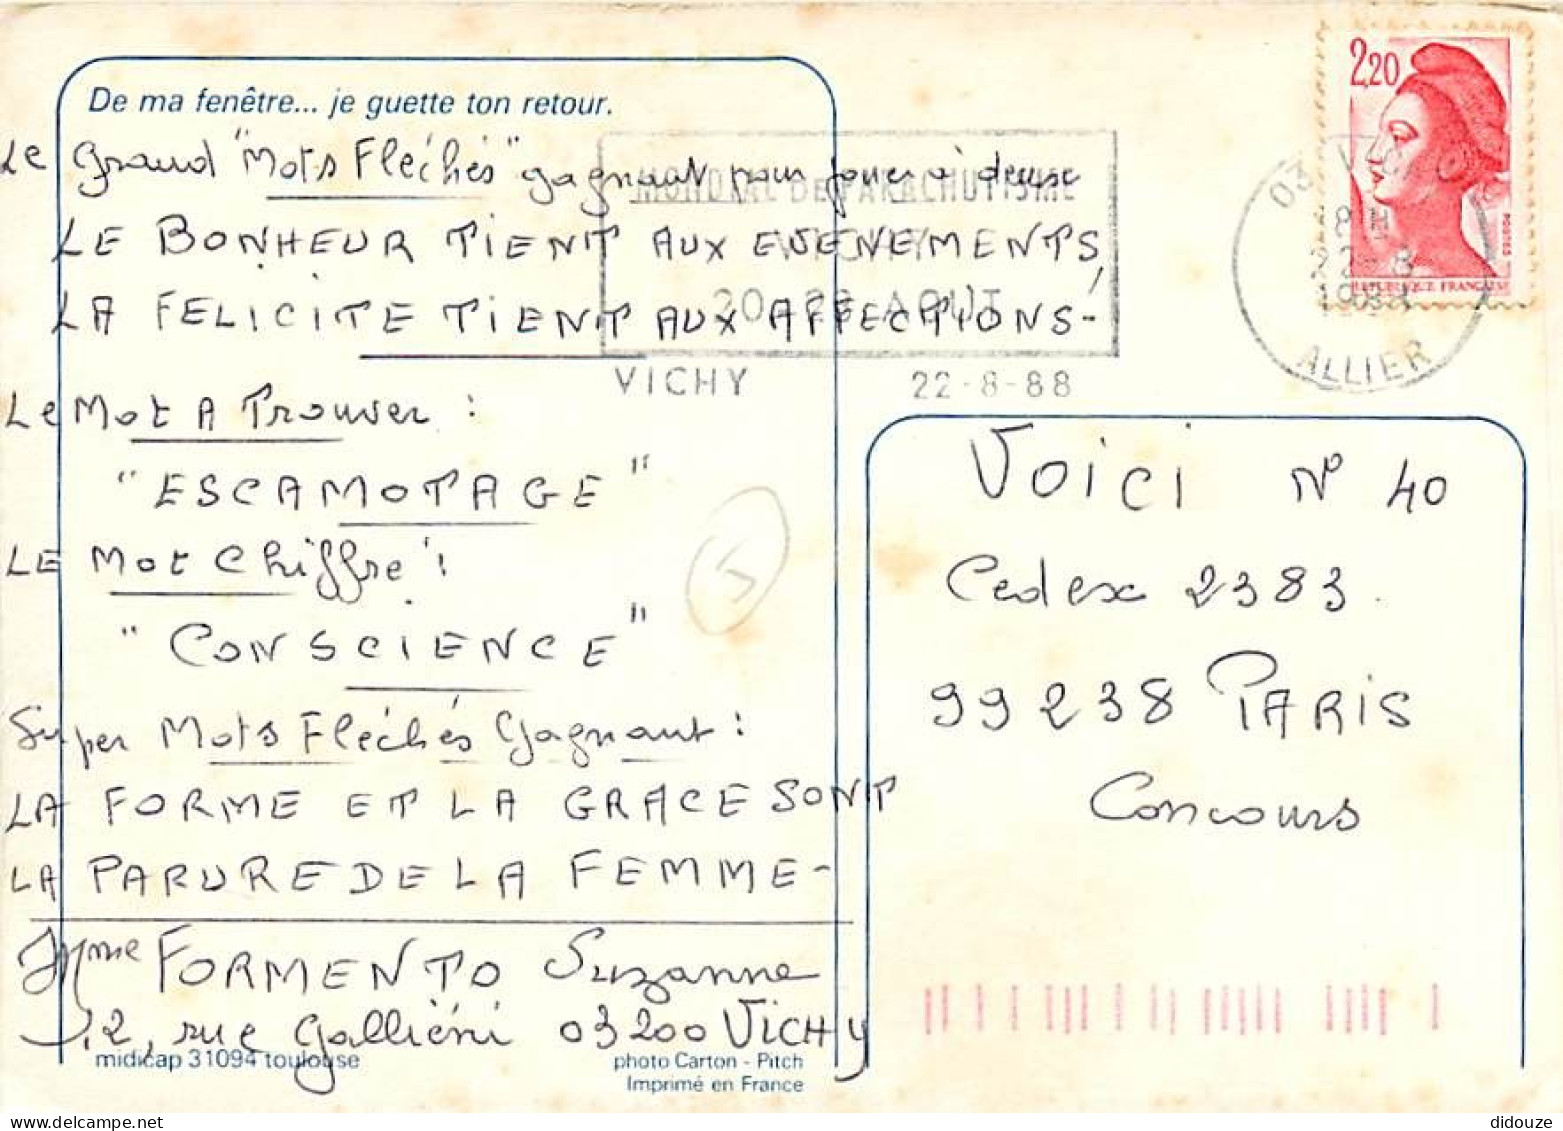 De ma fenêtre... je guette ton retour.
Le Grand "Mots Fléchés" gagnant pour jouer à deux
LE BONHEUR TIENT AUX EVENEMENTS,
LA FELICITE TIENT AUX AFFECTIONS-
Le Mot A Trouver :
"ESCAMOTAGE"
LE Mot Chiffré :
"CONSCIENCE"
Super Mots Fléchés Gagnant :
LA FORME ET LA GRACE SONT
LA PARURE DE LA FEMME-
Mme FORMENTO Suzanne
12, rue Galliéni 03200 VICHY
midicap 31094 toulouse
photo Carton - Pitch
Imprimé en France
MONDIAL DE PARACHUTISME
VICHY
20-28 AOUT
VICHY 22-8-88
2,20
POSTES
REPUBLIQUE FRANÇAISE
03 VICHY
22-8
1988
ALLIER
VOICI N° 40
Cedex 2383.
99238 PARIS
Concours
didouze